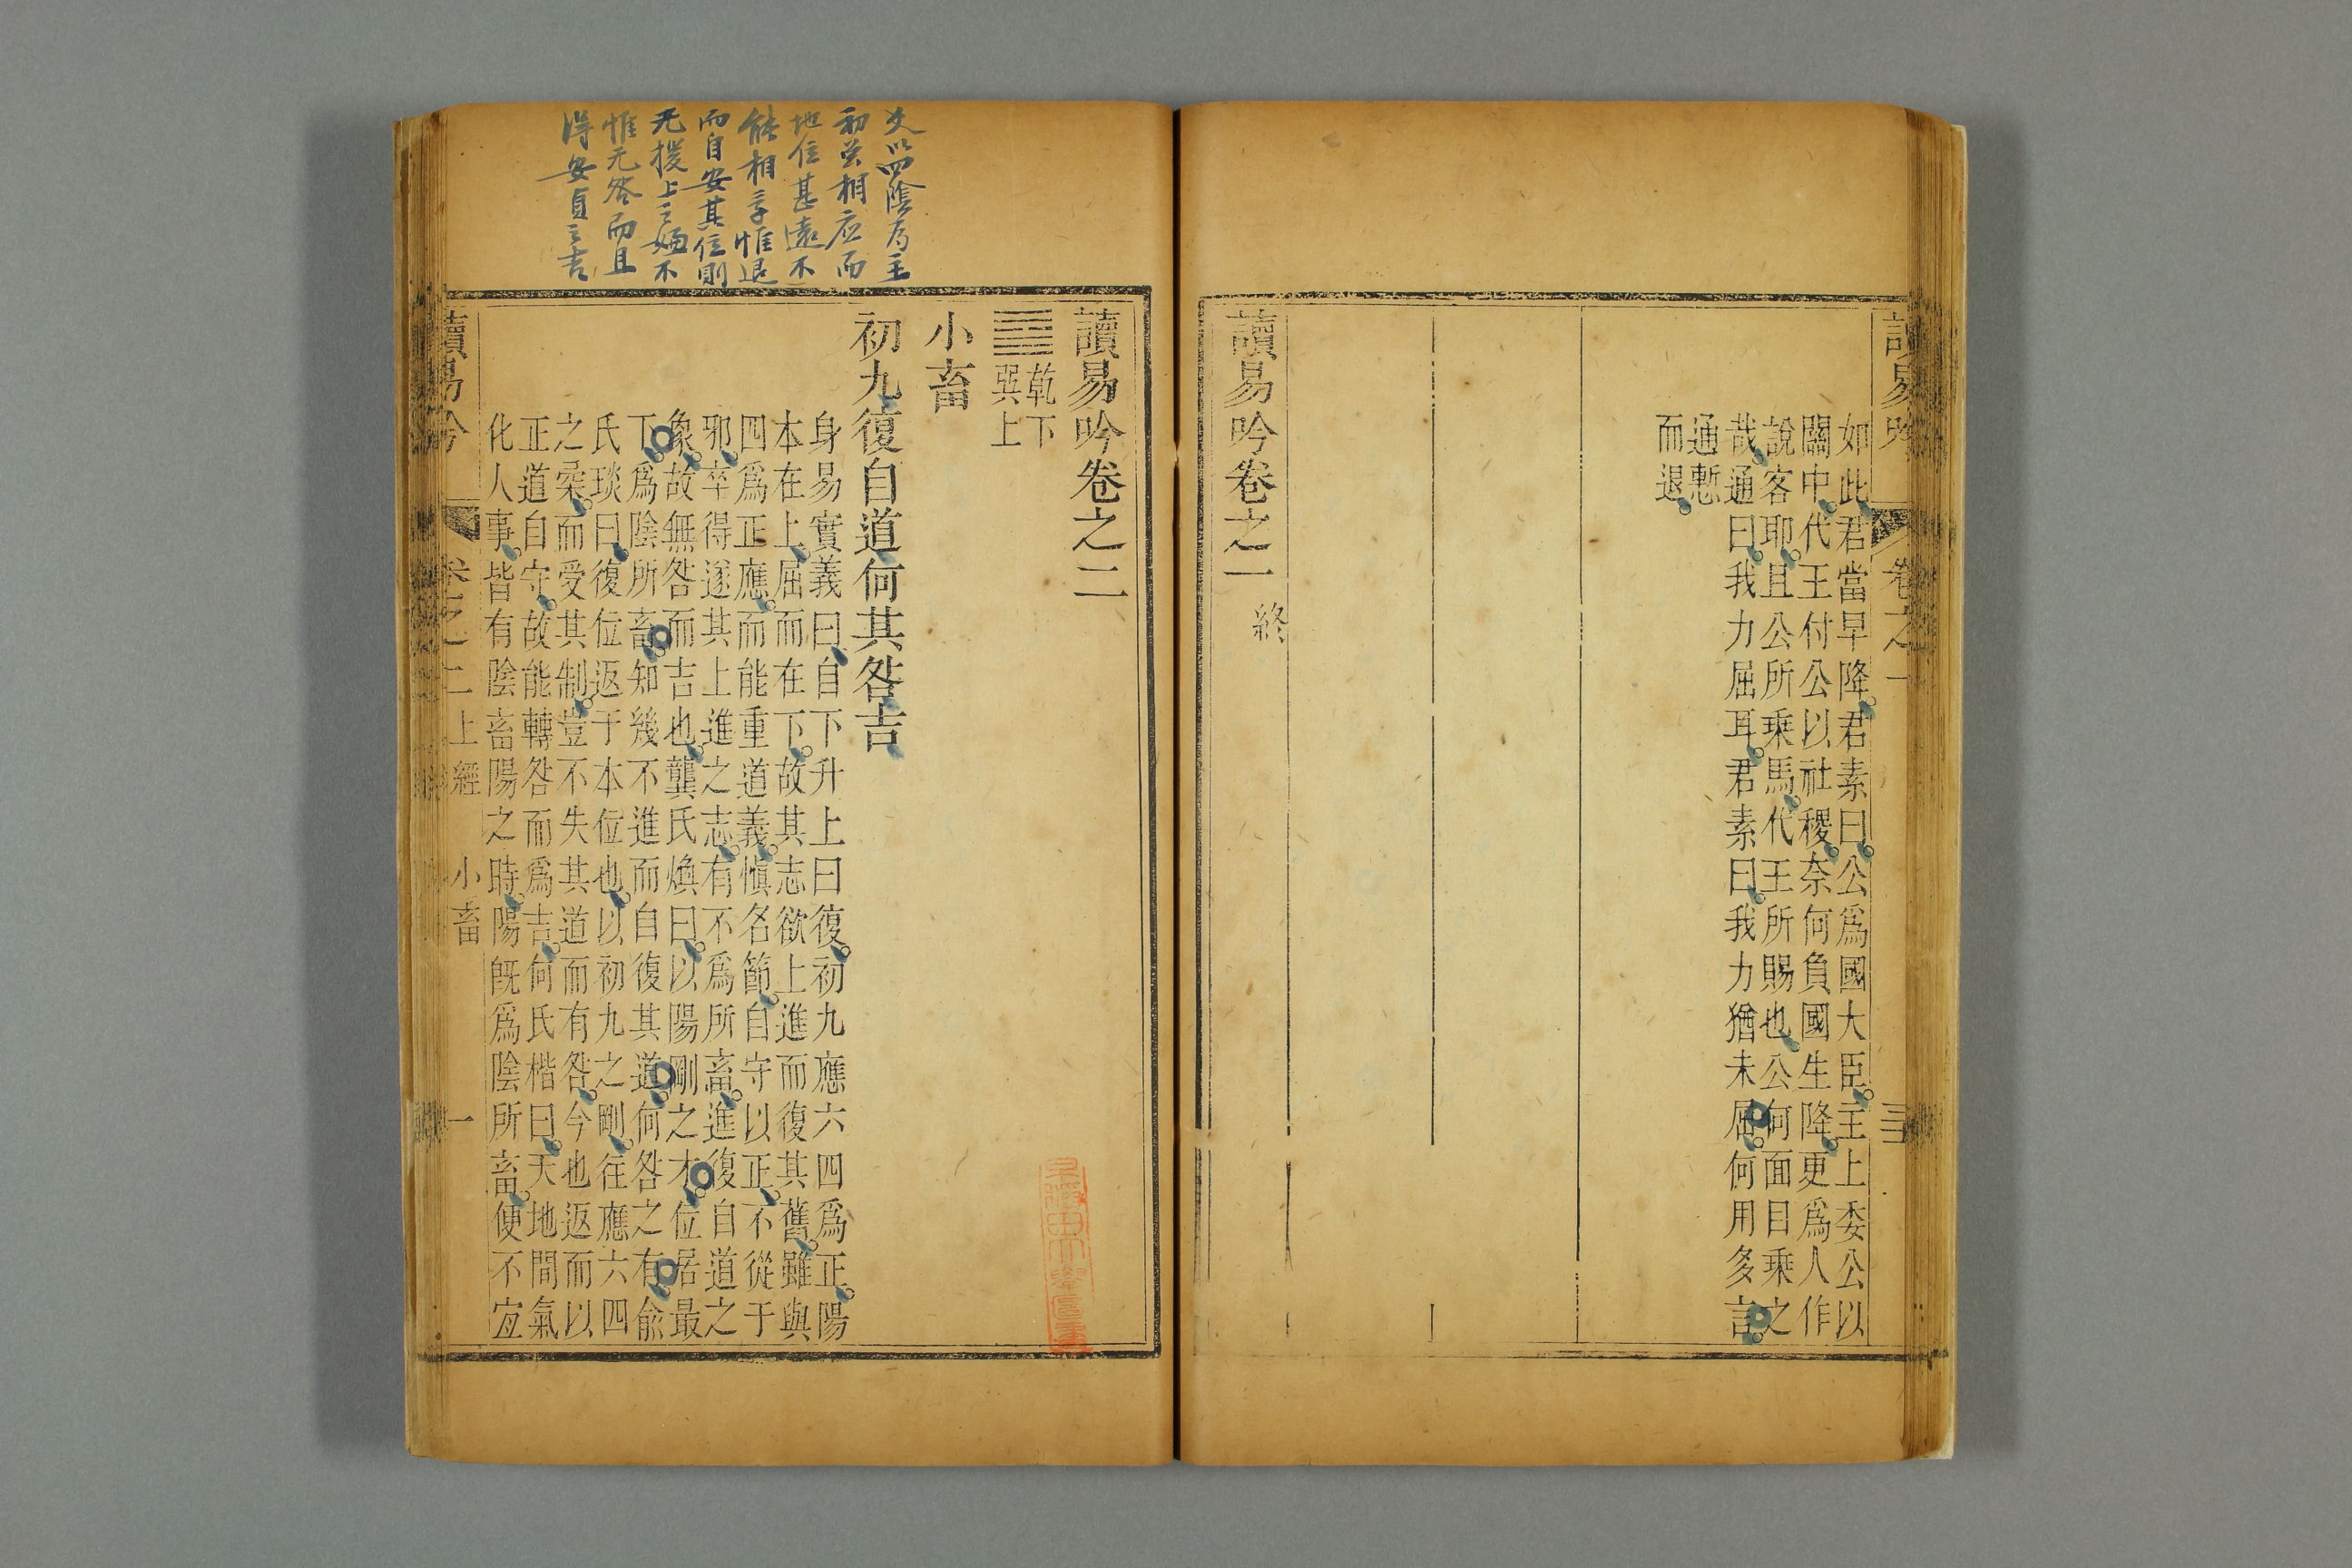 讀易吟
卷之一
三
如此君當早降君素曰公爲國大臣主上委公以
關中代王付公以社稷奈何負國生降更爲人作
說客耶且公所乘馬代王所賜也公何面目乘之
哉通曰我力屈耳君素曰我力猶未屈何用多言
通慙
而退
讀易吟卷之一
終
讀易吟卷之二
乾下
巽上
小畜
初九復自道何其咎吉
身易實義曰自下升上曰復初九應六四爲正陽
本在上屈而在下故其志欲上進而復其舊雖與
四爲正應而能重道義慎名節自守以正不從于
邪卒得遂其上進之志有不爲所畜進復自道之
象故無咎而吉也龔氏煥曰以陽剛之才位居最
下爲陰所畜知幾不進而自復其道何咎之有兪
氏琰曰復位返于本位也以初九之剛往應六四
之柔而受其制豈不失其道而有咎今也返而以
正道自守故能轉咎而爲吉何氏楷曰天地間氣
化人事皆有陰畜陽之時陽旣爲陰所畜便不宐
讀易吟
卷之二上經 小畜 一
爻以四陰爲主
初與相应而
地位甚遠不
能相孚惟退
而自安其位則
无援上之嫌不
惟无咎而且
得安貞之吉